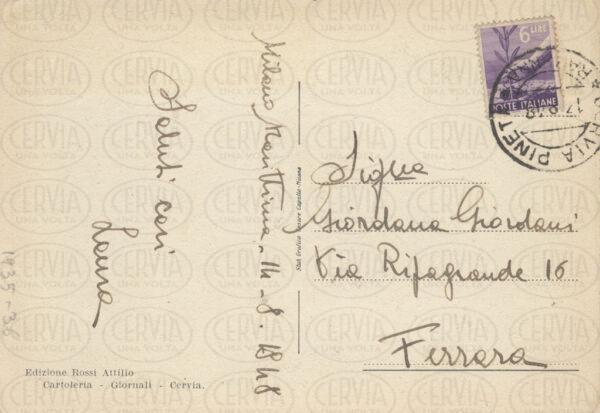 Milano Marittima - 14 - 8. 1948
Saluti cari
Laura
Sig.na
Giordana Giordani
Via Ripagrande 16
Ferrara
6 LIRE
POSTE ITALIANE
CERVIA PINETA
17.8.48
Edizione Rossi Attilio
Cartoleria - Giornali - Cervia.
1935-36
CERVIA
UNA VOLTA